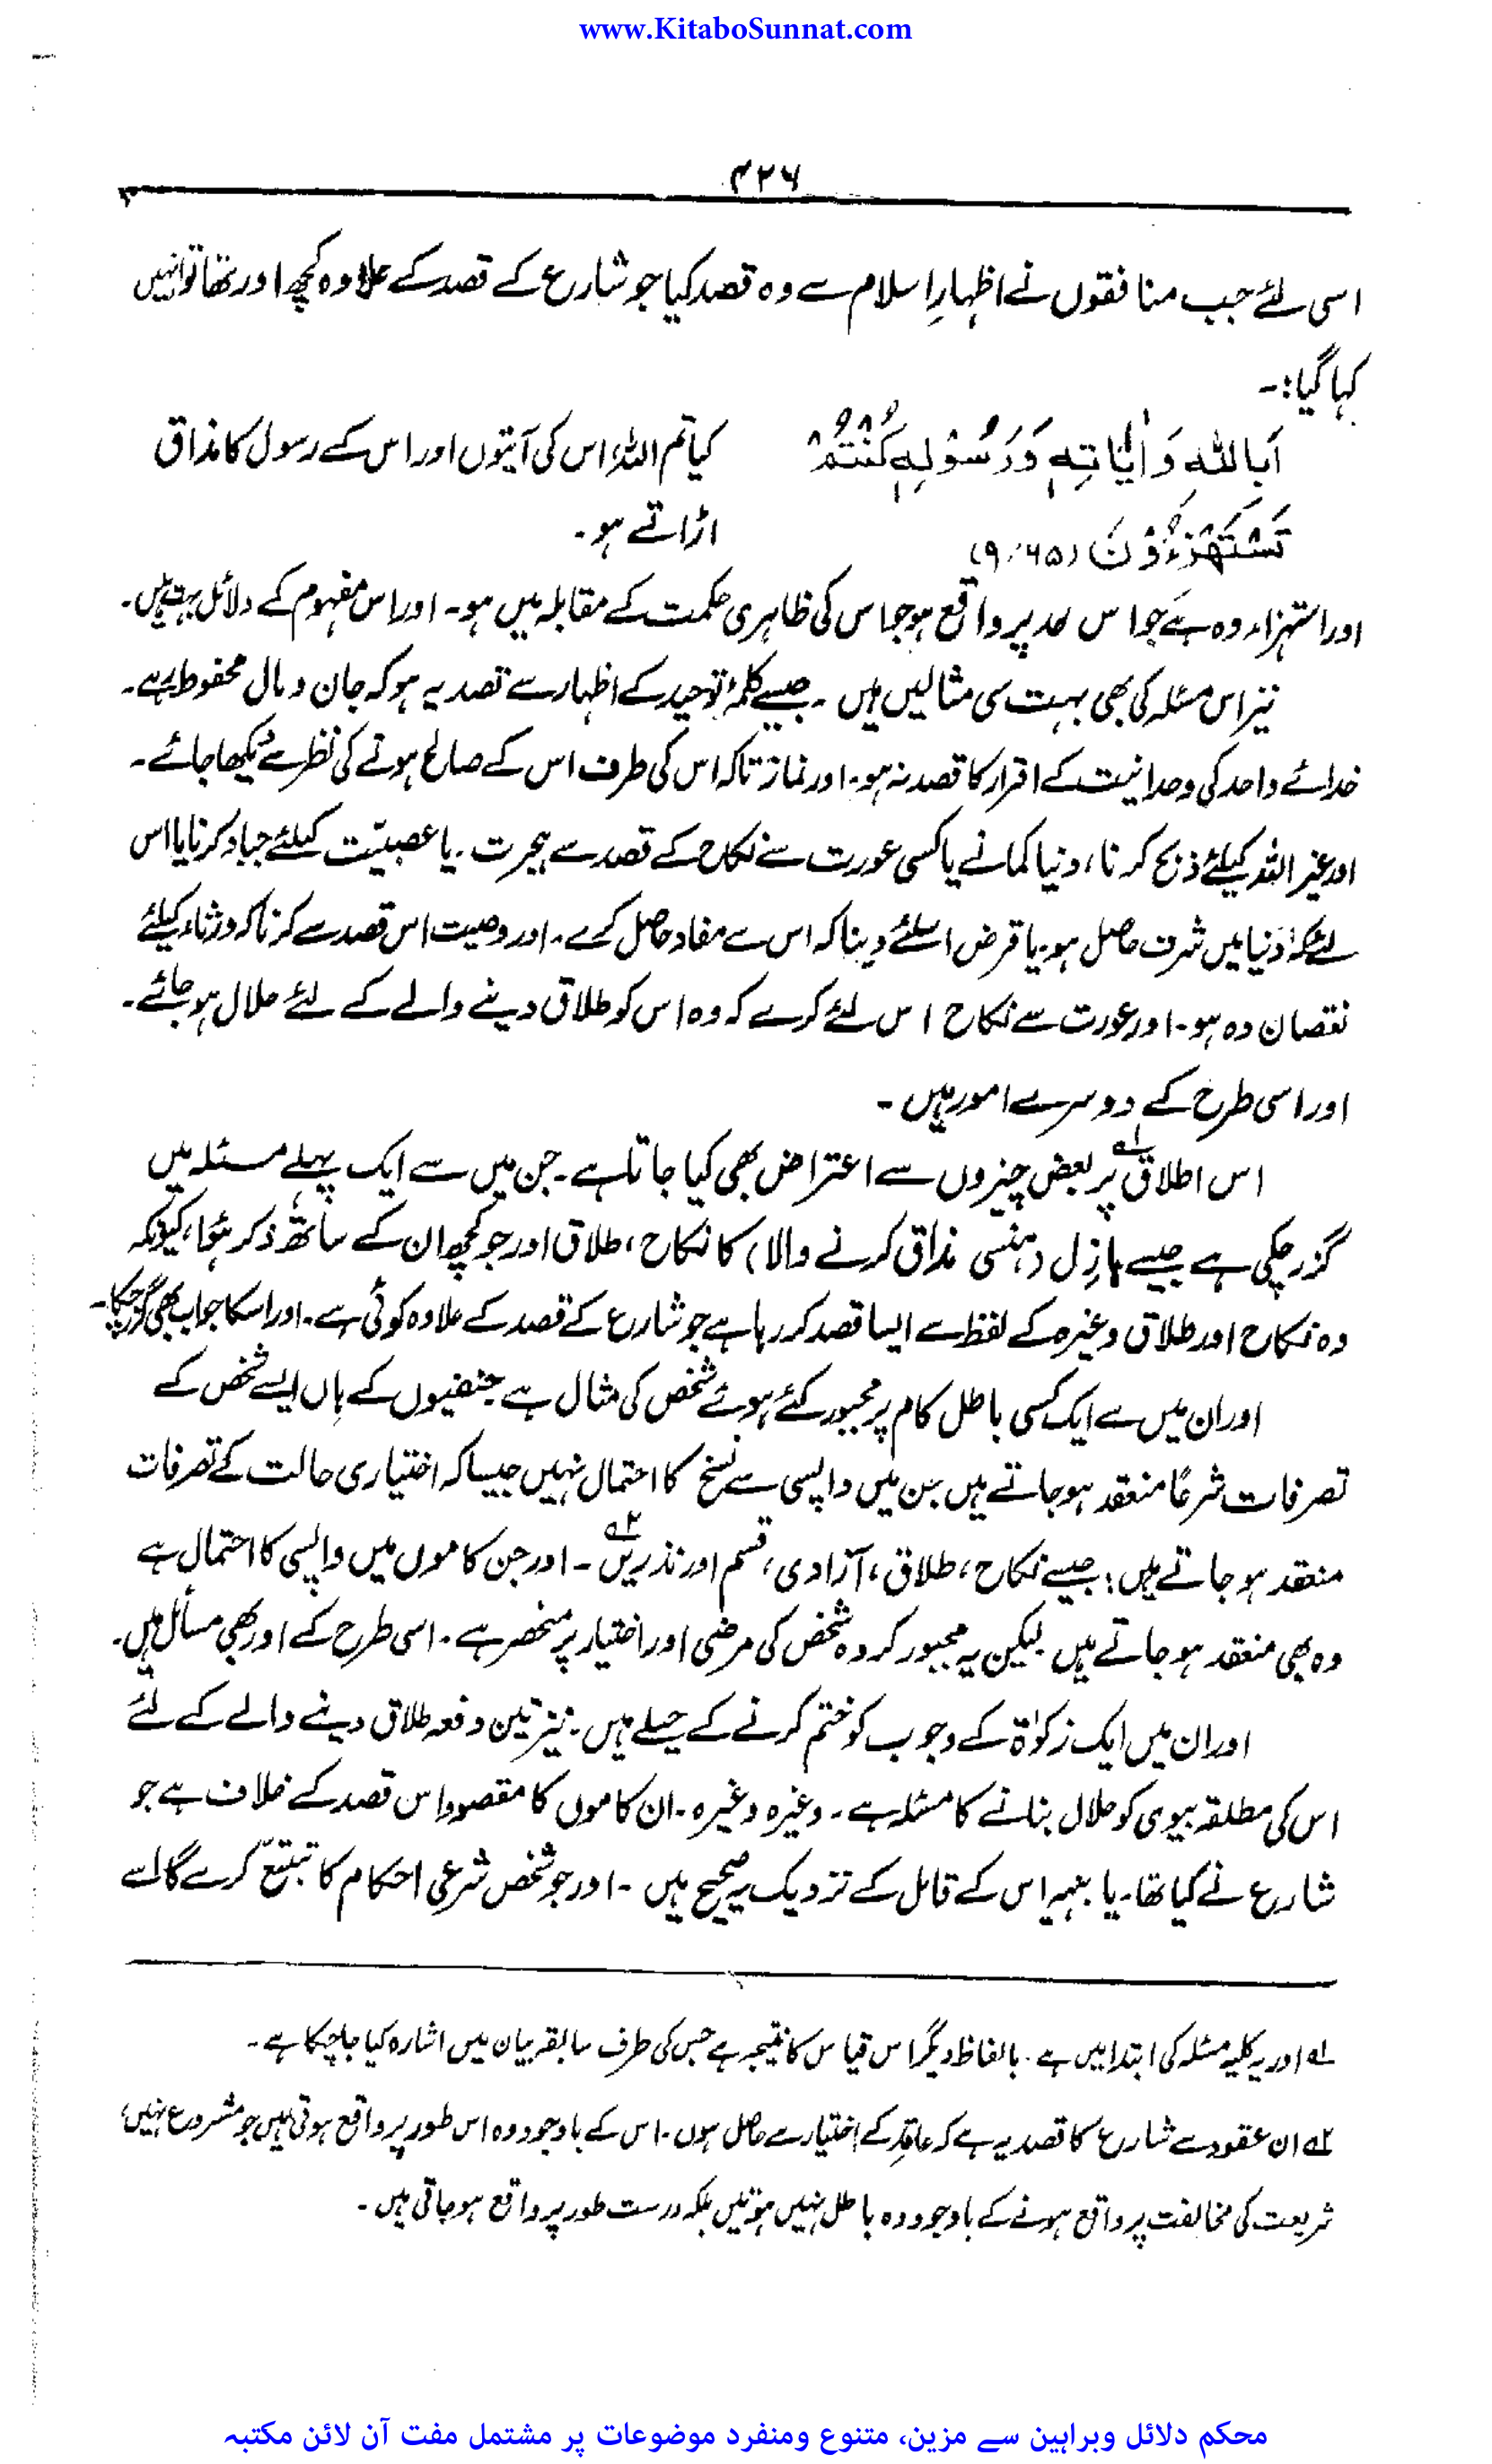 www.KitaboSunnat.com
۴۲۶
اسی لئے جب منافقوں نے اظہارِ اسلام سے وہ قصد کیا جو شارع کے قصد کے علاوہ کچھ اور تھا تو انہیں
کہا گیا:-
اَبِاللّٰهِ وَاٰيَاتِهٖ وَرَسُوْلِهٖ كُنْتُمْ
کیا تم اللہ، اس کی آیتوں اور اس کے رسول کا مذاق
تَسْتَهْزِءُوْنَ (۹/۶۵)
اڑاتے ہو۔
اور استہزاء وہ ہے جو اس حد پر واقع ہو جو اس کی ظاہری حکمت کے مقابلہ میں ہو۔ اور اس مفہوم کے دلائل بہت ہیں۔
نیز اس مسئلہ کی بھی بہت سی مثالیں ہیں۔ جیسے کلمۂ توحید کے اظہار سے قصد یہ ہو کہ جان و مال محفوظ رہے۔
خدائے واحد کی وحدانیت کے اقرار کا قصد نہ ہو۔ اور نماز تاکہ اس کی طرف اس کے صالح ہونے کی نظر سے دیکھا جائے۔
اور غیر اللہ کیلئے ذبح کرنا، دنیا کمانے یا کسی عورت سے نکاح کے قصد سے ہجرت۔ یا عصبیّت کیلئے جہاد کرنا یا اس
لئے کہ دُنیا میں شرف حاصل ہو۔ یا قرض اسلئے دینا کہ اس سے مفاد حاصل کرے۔ اور وصیت اس قصد سے کرنا کہ ورثاء کیلئے
نقصان دہ ہو۔ اور عورت سے نکاح اس لئے کرے کہ وہ اس کو طلاق دینے والے کے لئے حلال ہو جائے۔
اور اسی طرح کے دوسرے امور ہیں۔
اس اطلاق لہ پر بعض چیزوں سے اعتراض بھی کیا جاتا ہے۔ جن میں سے ایک پہلے مسئلہ میں
گزر چکی ہے جیسے ہازِل (ہنسی مذاق کرنے والا) کا نکاح، طلاق اور جو کچھ ان کے ساتھ ذکر ہؤا، کیونکہ
وہ نکاح اور طلاق وغیرہ کے لفظ سے ایسا قصد کر رہا ہے جو شارع کے قصد کے علاوہ کوئی ہے۔ اور اسکا جواب بھی گزر چکا۔
اور ان میں سے ایک کسی باطل کام پر مجبور کئے ہوئے شخص کی مثال ہے حنفیوں کے ہاں ایسے شخص کے
تصرفات شرعًا منعقد ہو جاتے ہیں جن میں واپسی سے فسخ کا احتمال نہیں جیسا کہ اختیاری حالت کے تصرفات
منعقد ہو جاتے ہیں؛ جیسے نکاح، طلاق، آزادی، قسم اور نذریں ٢ہ۔ اور جن کاموں میں واپسی کا احتمال ہے
وہ بھی منعقد ہو جاتے ہیں لیکن یہ مجبور کردہ شخص کی مرضی اور اختیار پر منحصر ہے۔ اسی طرح کے اور بھی مسائل ہیں۔
اور ان میں ایک زکوٰۃ کے وجوب کو ختم کرنے کے حیلے ہیں۔ نیز تین دفعہ طلاق دینے والے کے لئے
اس کی مطلقہ بیوی کو حلال بنانے کا مسئلہ ہے۔ وغیرہ وغیرہ۔ ان کاموں کا مقصود اس قصد کے خلاف ہے جو
شارع نے کیا تھا۔ یا بہمہ اس کے قائل کے نزدیک یہ صحیح ہیں۔ اور جو شخص شرعی احکام کا تتبّع کرے گا اسے
لہ اور یہ کلیہ مسئلہ کی ابتدا میں ہے۔ بالفاظ دیگر اس قیاس کا نتیجہ ہے جس کی طرف سابقہ بیان میں اشارہ کیا جا چکا ہے۔
٢ہ ان عقود سے شارع کا قصد یہ ہے کہ عاقد کے اختیار سے حاصل ہوں۔ اس کے باوجود وہ اس طور پر واقع ہوتی ہیں جو مشروع نہیں،
شریعت کی مخالفت پر واقع ہونے کے باوجود وہ باطل نہیں ہوتیں بلکہ درست طور پر واقع ہو جاتی ہیں۔
محکم دلائل وبراہین سے مزین، متنوع ومنفرد موضوعات پر مشتمل مفت آن لائن مکتبہ